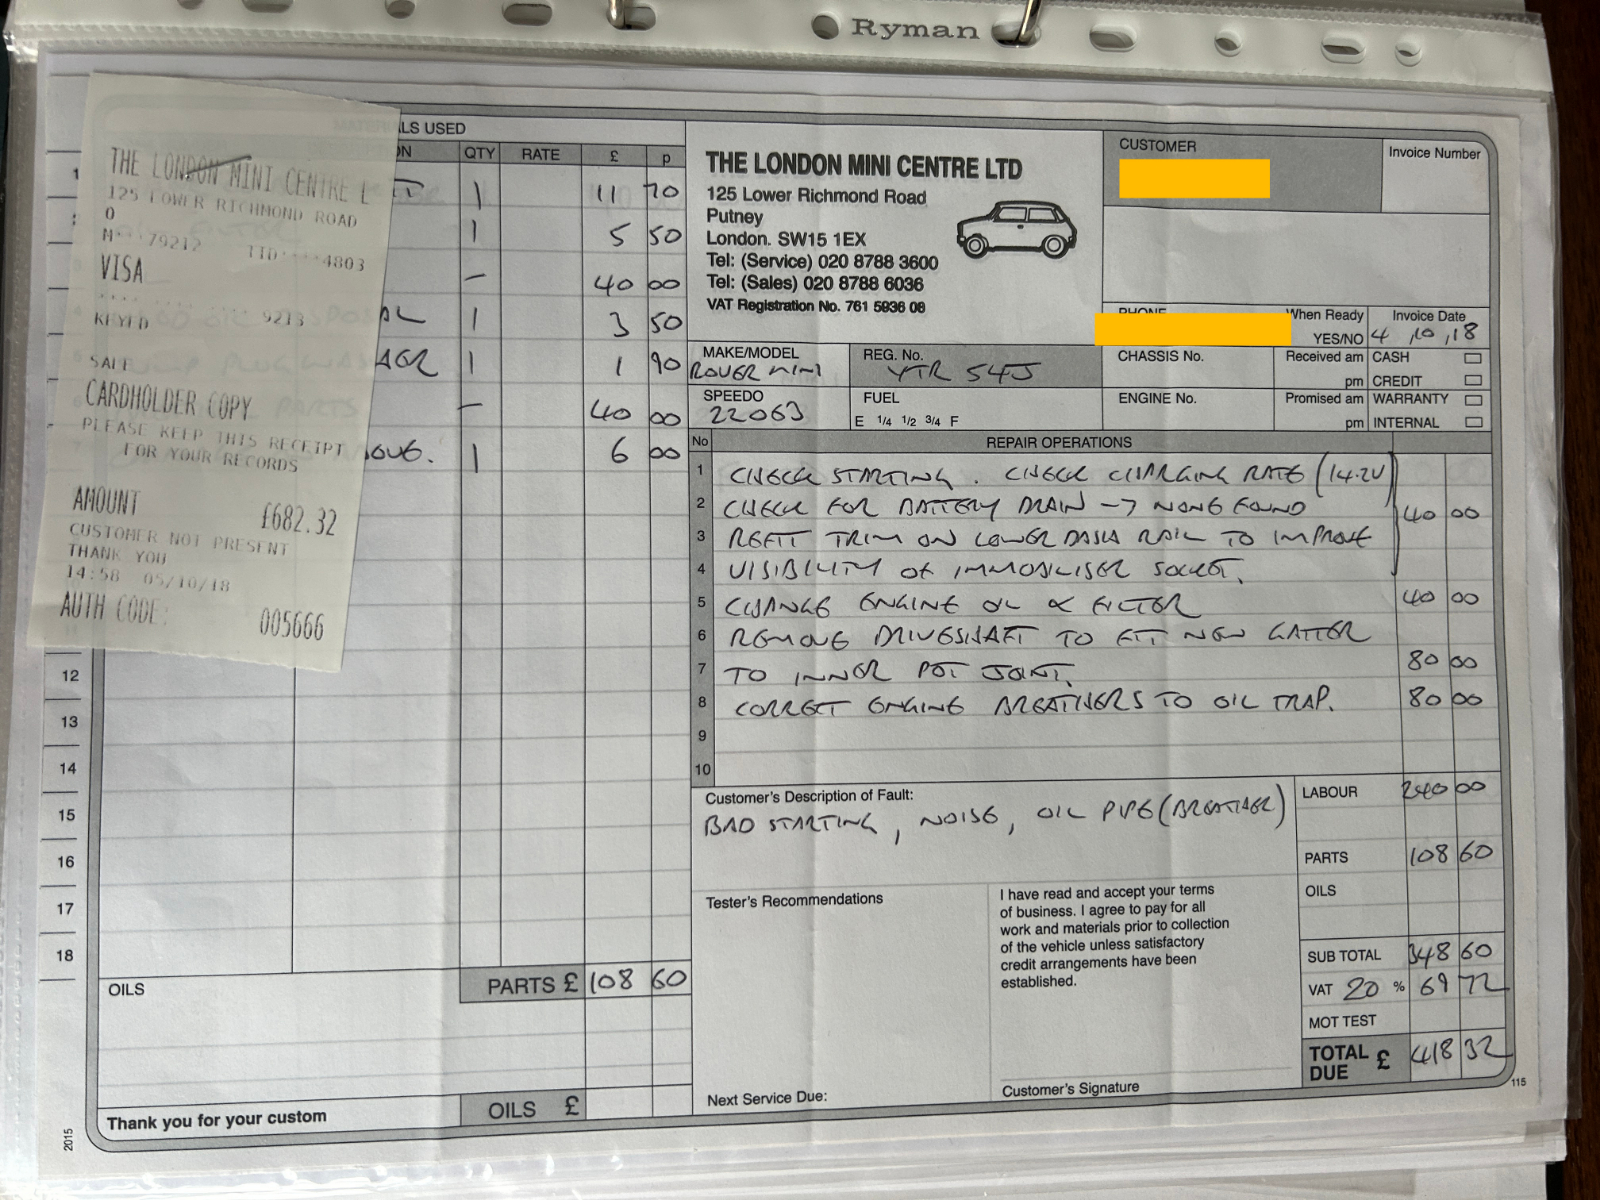 Ryman
THE LONDON MINI CENTRE L
125 LOWER RICHMOND ROAD
0
M****79217 TID****4803
VISA
9213
KEYED
SALE
CARDHOLDER COPY
PLEASE KEEP THIS RECEIPT
FOR YOUR RECORDS
AMOUNT £682.32
CUSTOMER NOT PRESENT
THANK YOU
14:58 05/10/18
AUTH CODE: 005666
LS USED
ON QTY RATE £ p
1 11 70
1 5 50
– 40 00
AL 1 3 50
1 1 90
– 40 00
1 6 00
12
13
14
15
16
17
18
OILS
PARTS £ 108 60
Thank you for your custom
OILS £
2015
THE LONDON MINI CENTRE LTD
125 Lower Richmond Road
Putney
London. SW15 1EX
Tel: (Service) 020 8788 3600
Tel: (Sales) 020 8788 6036
VAT Registration No. 761 5936 08
CUSTOMER
Invoice Number
PHONE
When Ready
YES/NO
Invoice Date
4,10,18
MAKE/MODEL
ROVER MINI
REG. No.
YTR 54J
CHASSIS No.
Received am
pm
CASH
CREDIT
SPEEDO
22063
FUEL
E 1/4 1/2 3/4 F
ENGINE No.
Promised am
pm
WARRANTY
INTERNAL
No REPAIR OPERATIONS
1 CHECK STARTING. CHECK CHARGING RATE (14.2V)
2 CHECK FOR BATTERY DRAIN -> NONE FOUND 40 00
3 REFIT TRIM ON LOWER DASH RAIL TO IMPROVE
4 VISIBILITY OF IMMOBILISER SOCKET.
5 CHANGE ENGINE OIL & FILTER 40 00
6 REMOVE DRIVESHAFT TO FIT NEW GAITER
7 TO INNER POT JOINT. 80 00
8 CORRECT ENGINE BREATHERS TO OIL TRAP. 80 00
9
10
Customer's Description of Fault:
BAD STARTING, NOISE, OIL PIPE (BREATHER)
LABOUR 240 00
PARTS 108 60
OILS
SUB TOTAL 348 60
VAT 20 % 69 72
MOT TEST
TOTAL DUE £ 418 32
Tester's Recommendations
I have read and accept your terms
of business. I agree to pay for all
work and materials prior to collection
of the vehicle unless satisfactory
credit arrangements have been
established.
Next Service Due:
Customer's Signature
115